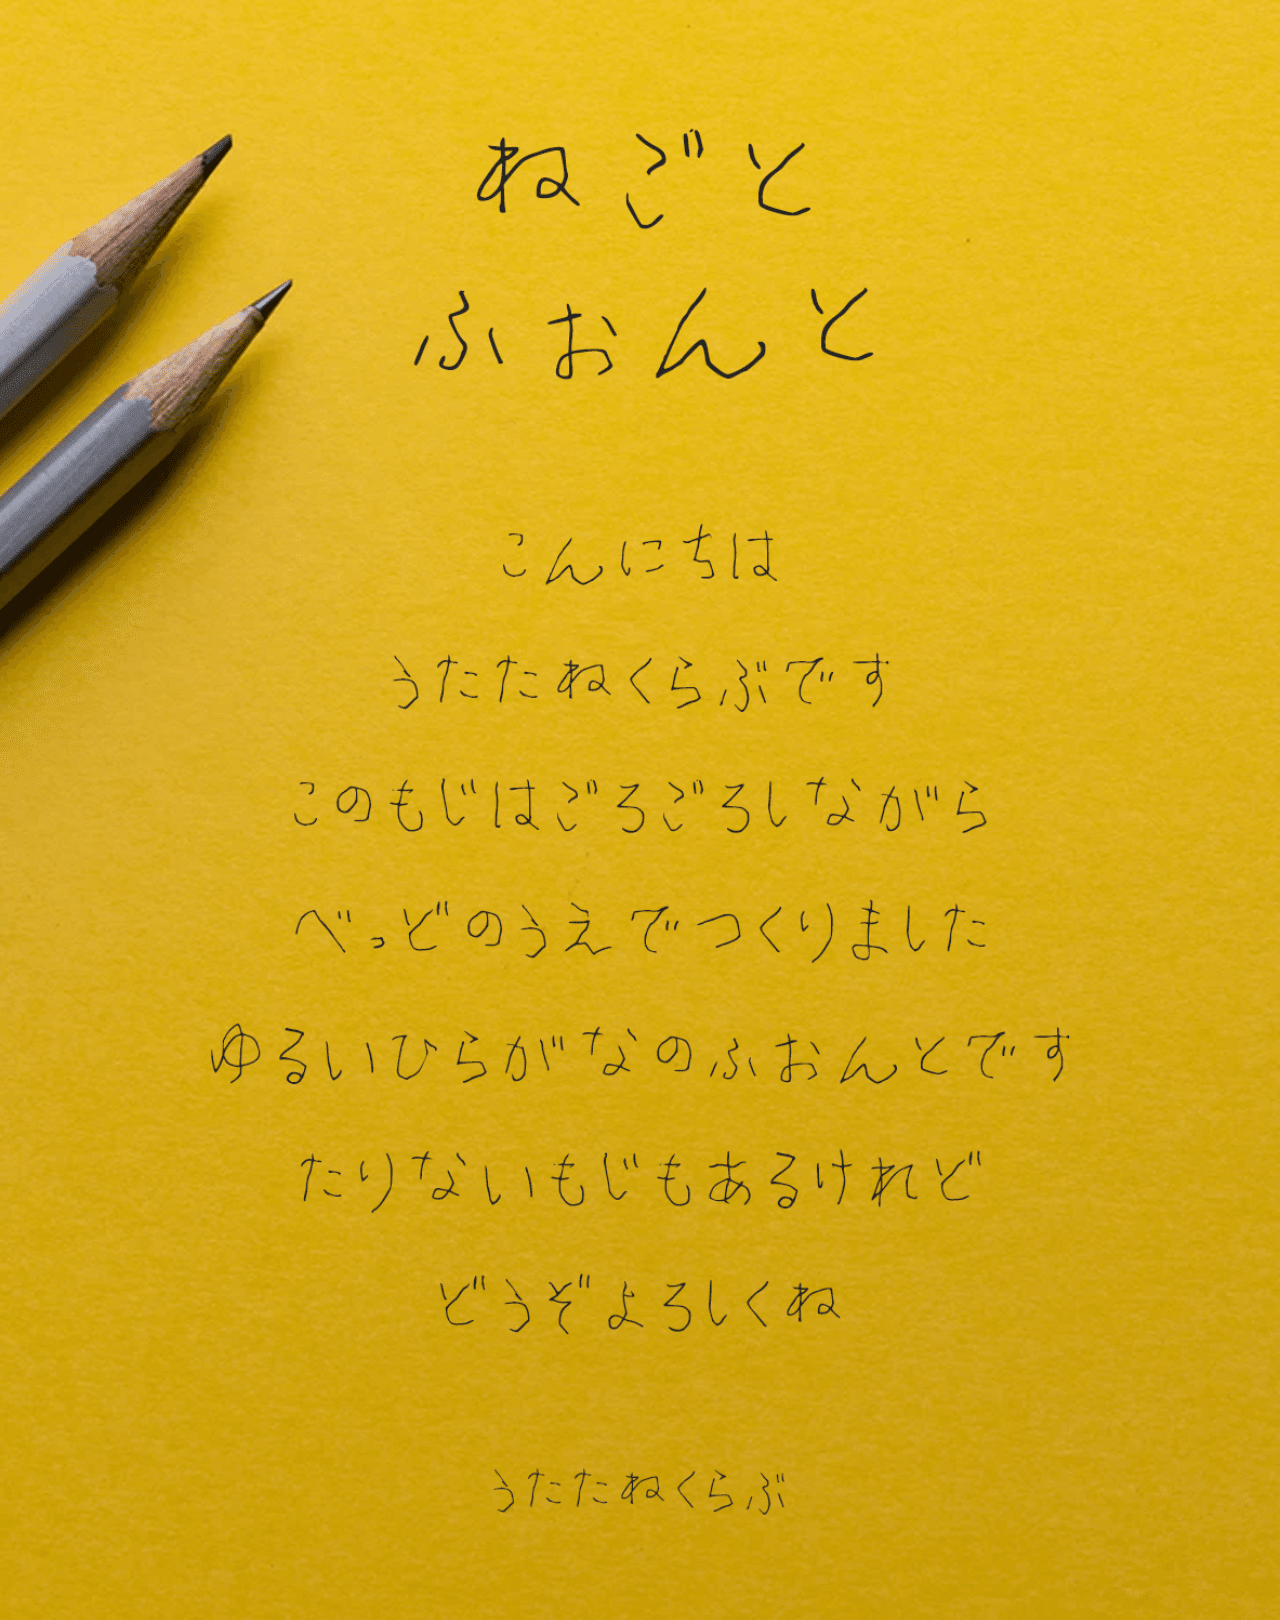 ねごと
ふぉんと
こんにちは
うたたねくらぶです
このもじはごろごろしながら
べっどのうえでつくりました
ゆるいひらがなのふぉんとです
たりないもじもあるけれど
どうぞよろしくね
うたたねくらぶ